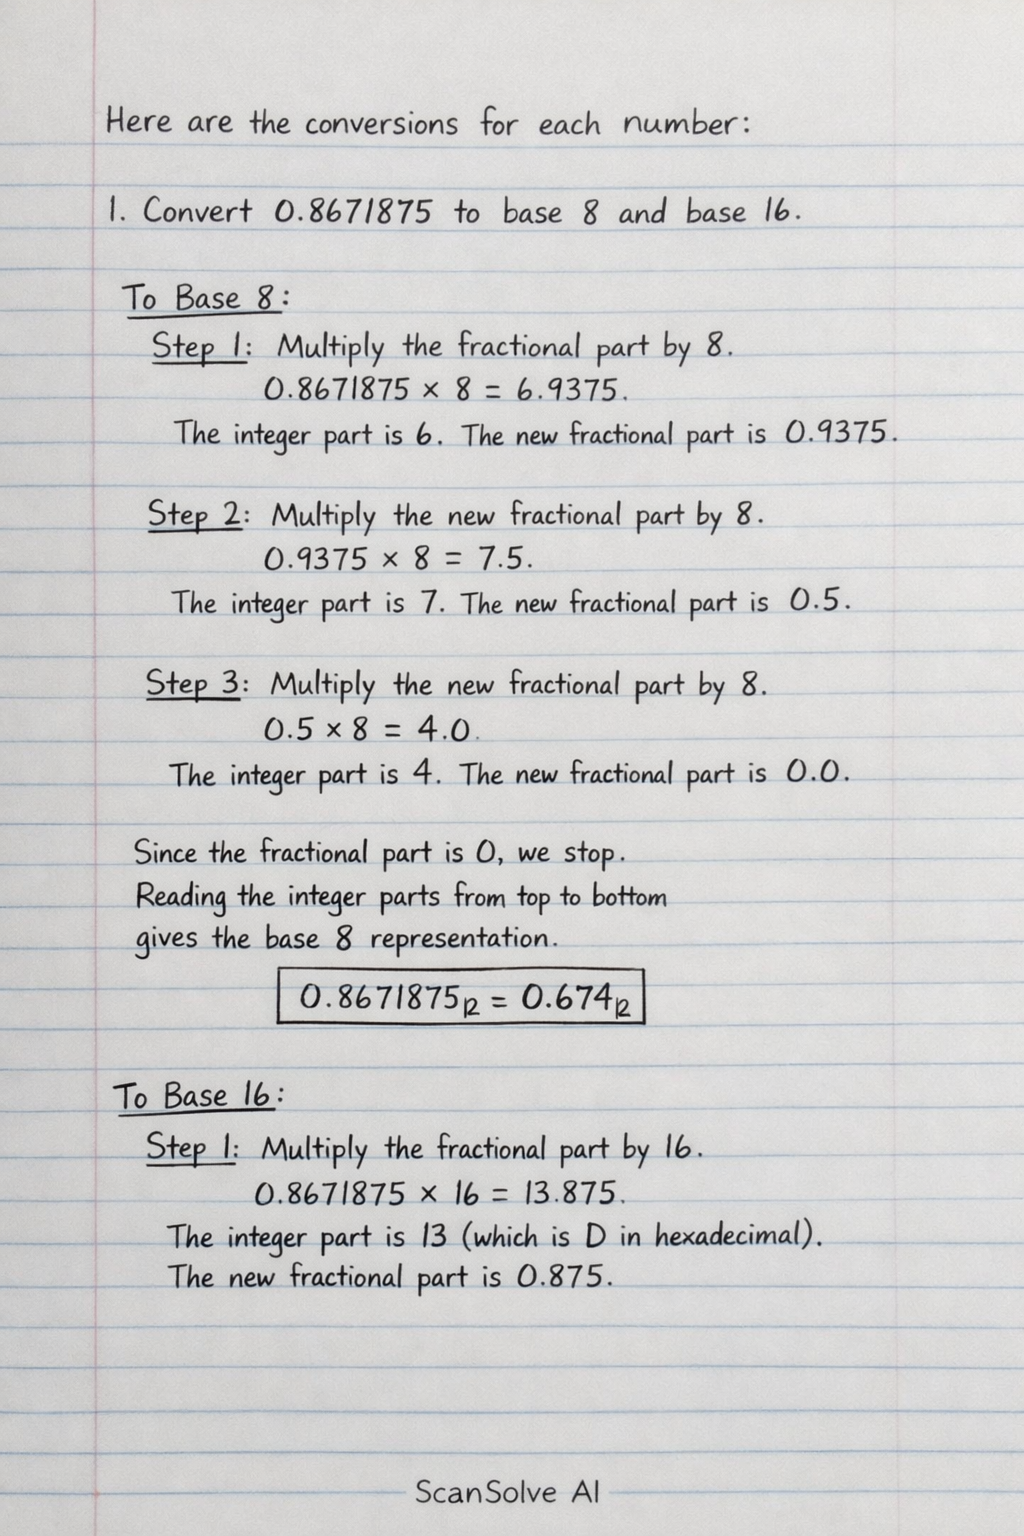 Here are the conversions for each number:
1. Convert 0.8671875 to base 8 and base 16.
To Base 8:
Step 1: Multiply the fractional part by 8.
0.8671875 × 8 = 6.9375.
The integer part is 6. The new fractional part is 0.9375.
Step 2: Multiply the new fractional part by 8.
0.9375 × 8 = 7.5.
The integer part is 7. The new fractional part is 0.5.
Step 3: Multiply the new fractional part by 8.
0.5 × 8 = 4.0.
The integer part is 4. The new fractional part is 0.0.
Since the fractional part is 0, we stop.
Reading the integer parts from top to bottom
gives the base 8 representation.
0.8671875₁₂ = 0.674₁₂
To Base 16:
Step 1: Multiply the fractional part by 16.
0.8671875 × 16 = 13.875.
The integer part is 13 (which is D in hexadecimal).
The new fractional part is 0.875.
ScanSolve AI